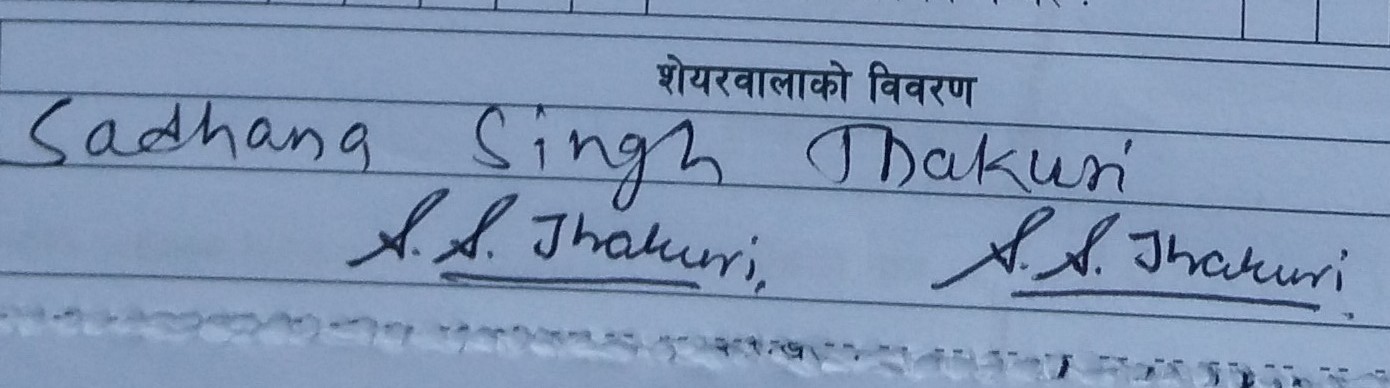 शेयरवालाको विवरण
Sadhana Singh Thakuri
S. S. Thakuri, S. S. Thakuri.